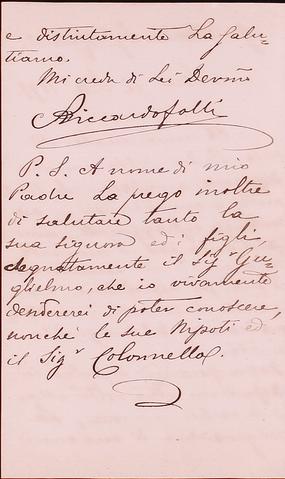 e distintamente La Salu-
tiamo.
Mi creda di Lei Devmo
Riccardo Folli
P. S. A nome di mio
Padre La prego inoltre
di salutare tanto la
sua signora ed i figli,
segnatamente il Sigr Gu-
glielmo, che io vivamente
desidererei di poter conoscere,
nonchè le sue Nipoti ed
il Sigr Colonnello.